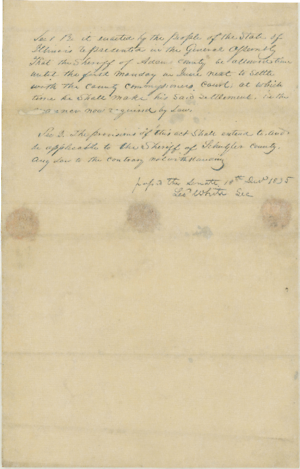 Sec 1 Be it enacted by the people of the State of
Illinois represented in the General Assembly
That the Sheriff of Adams County be allowed time
until the first Monday in June next to settle
with the County Commissioners Court at which
time he Shall make his Said Settlement in the
manner now required by Law
Sec 2. The provisions of this act Shall extend to and
be applicable to the Sheriff of Schuyler County
Any law to the contrary notwithstanding
the Senate 1835
Leo White Sec